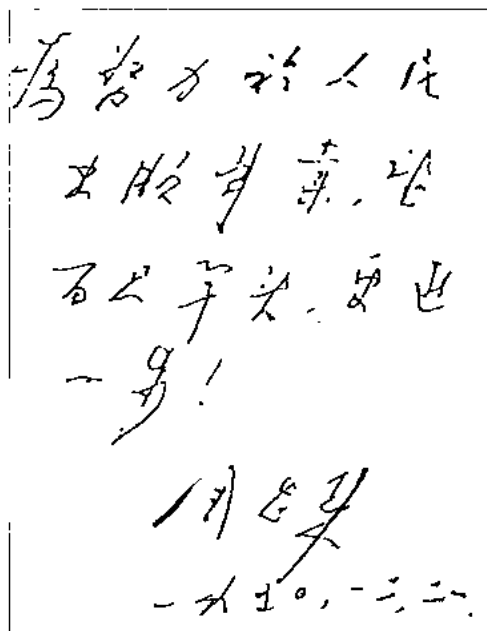 為努力於人民
出版事業,
百尺竿头,更进
一步!
周恩来
一九五〇,一二,二一.